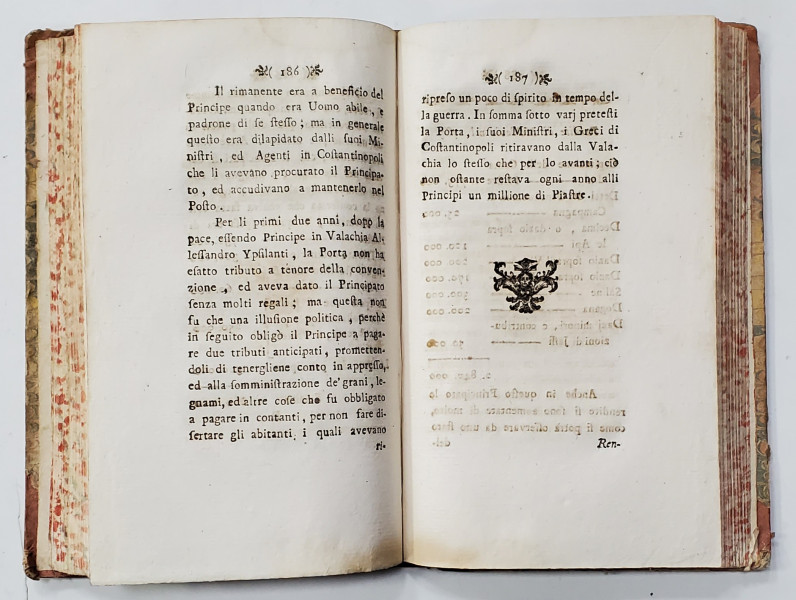 ( 186 )
Il rimanente era a beneficio del
Principe quando era Uomo abile, e
padrone di se stesso; ma in generale
questo era dilapidato dalli suoi Mi-
nistri, ed Agenti in Costantinopoli
che li avevano procurato il Principa-
to, ed accudivano a mantenerlo nel
Posto.
Per li primi due anni, dopo la
pace, essendo Principe in Valachia Al-
lessandro Ypsilanti, la Porta non ha
esatto tributo a tenore della conven-
zione, ed aveva dato il Principato
senza molti regali; ma questa non
fu che una illusione politica, perchè
in seguito obligò il Principe a paga-
re due tributi anticipati, prometten-
doli di tenergliene conto in appresso,
ed alla somministrazione de' grani, le-
gnami, ed altre cose che fu obbligato
a pagare in contanti, per non fare di-
sertare gli abitanti, i quali avevano
ri-
( 187 )
ripreso un poco di spirito in tempo del-
la guerra. In somma sotto varj pretesti
la Porta, i suoi Ministri, i Greci di
Costantinopoli ritiravano dalla Vala-
chia lo stesso che per lo avanti; ciò
non ostante restava ogni anno alli
Principi un millione di Piastre.
Ren-